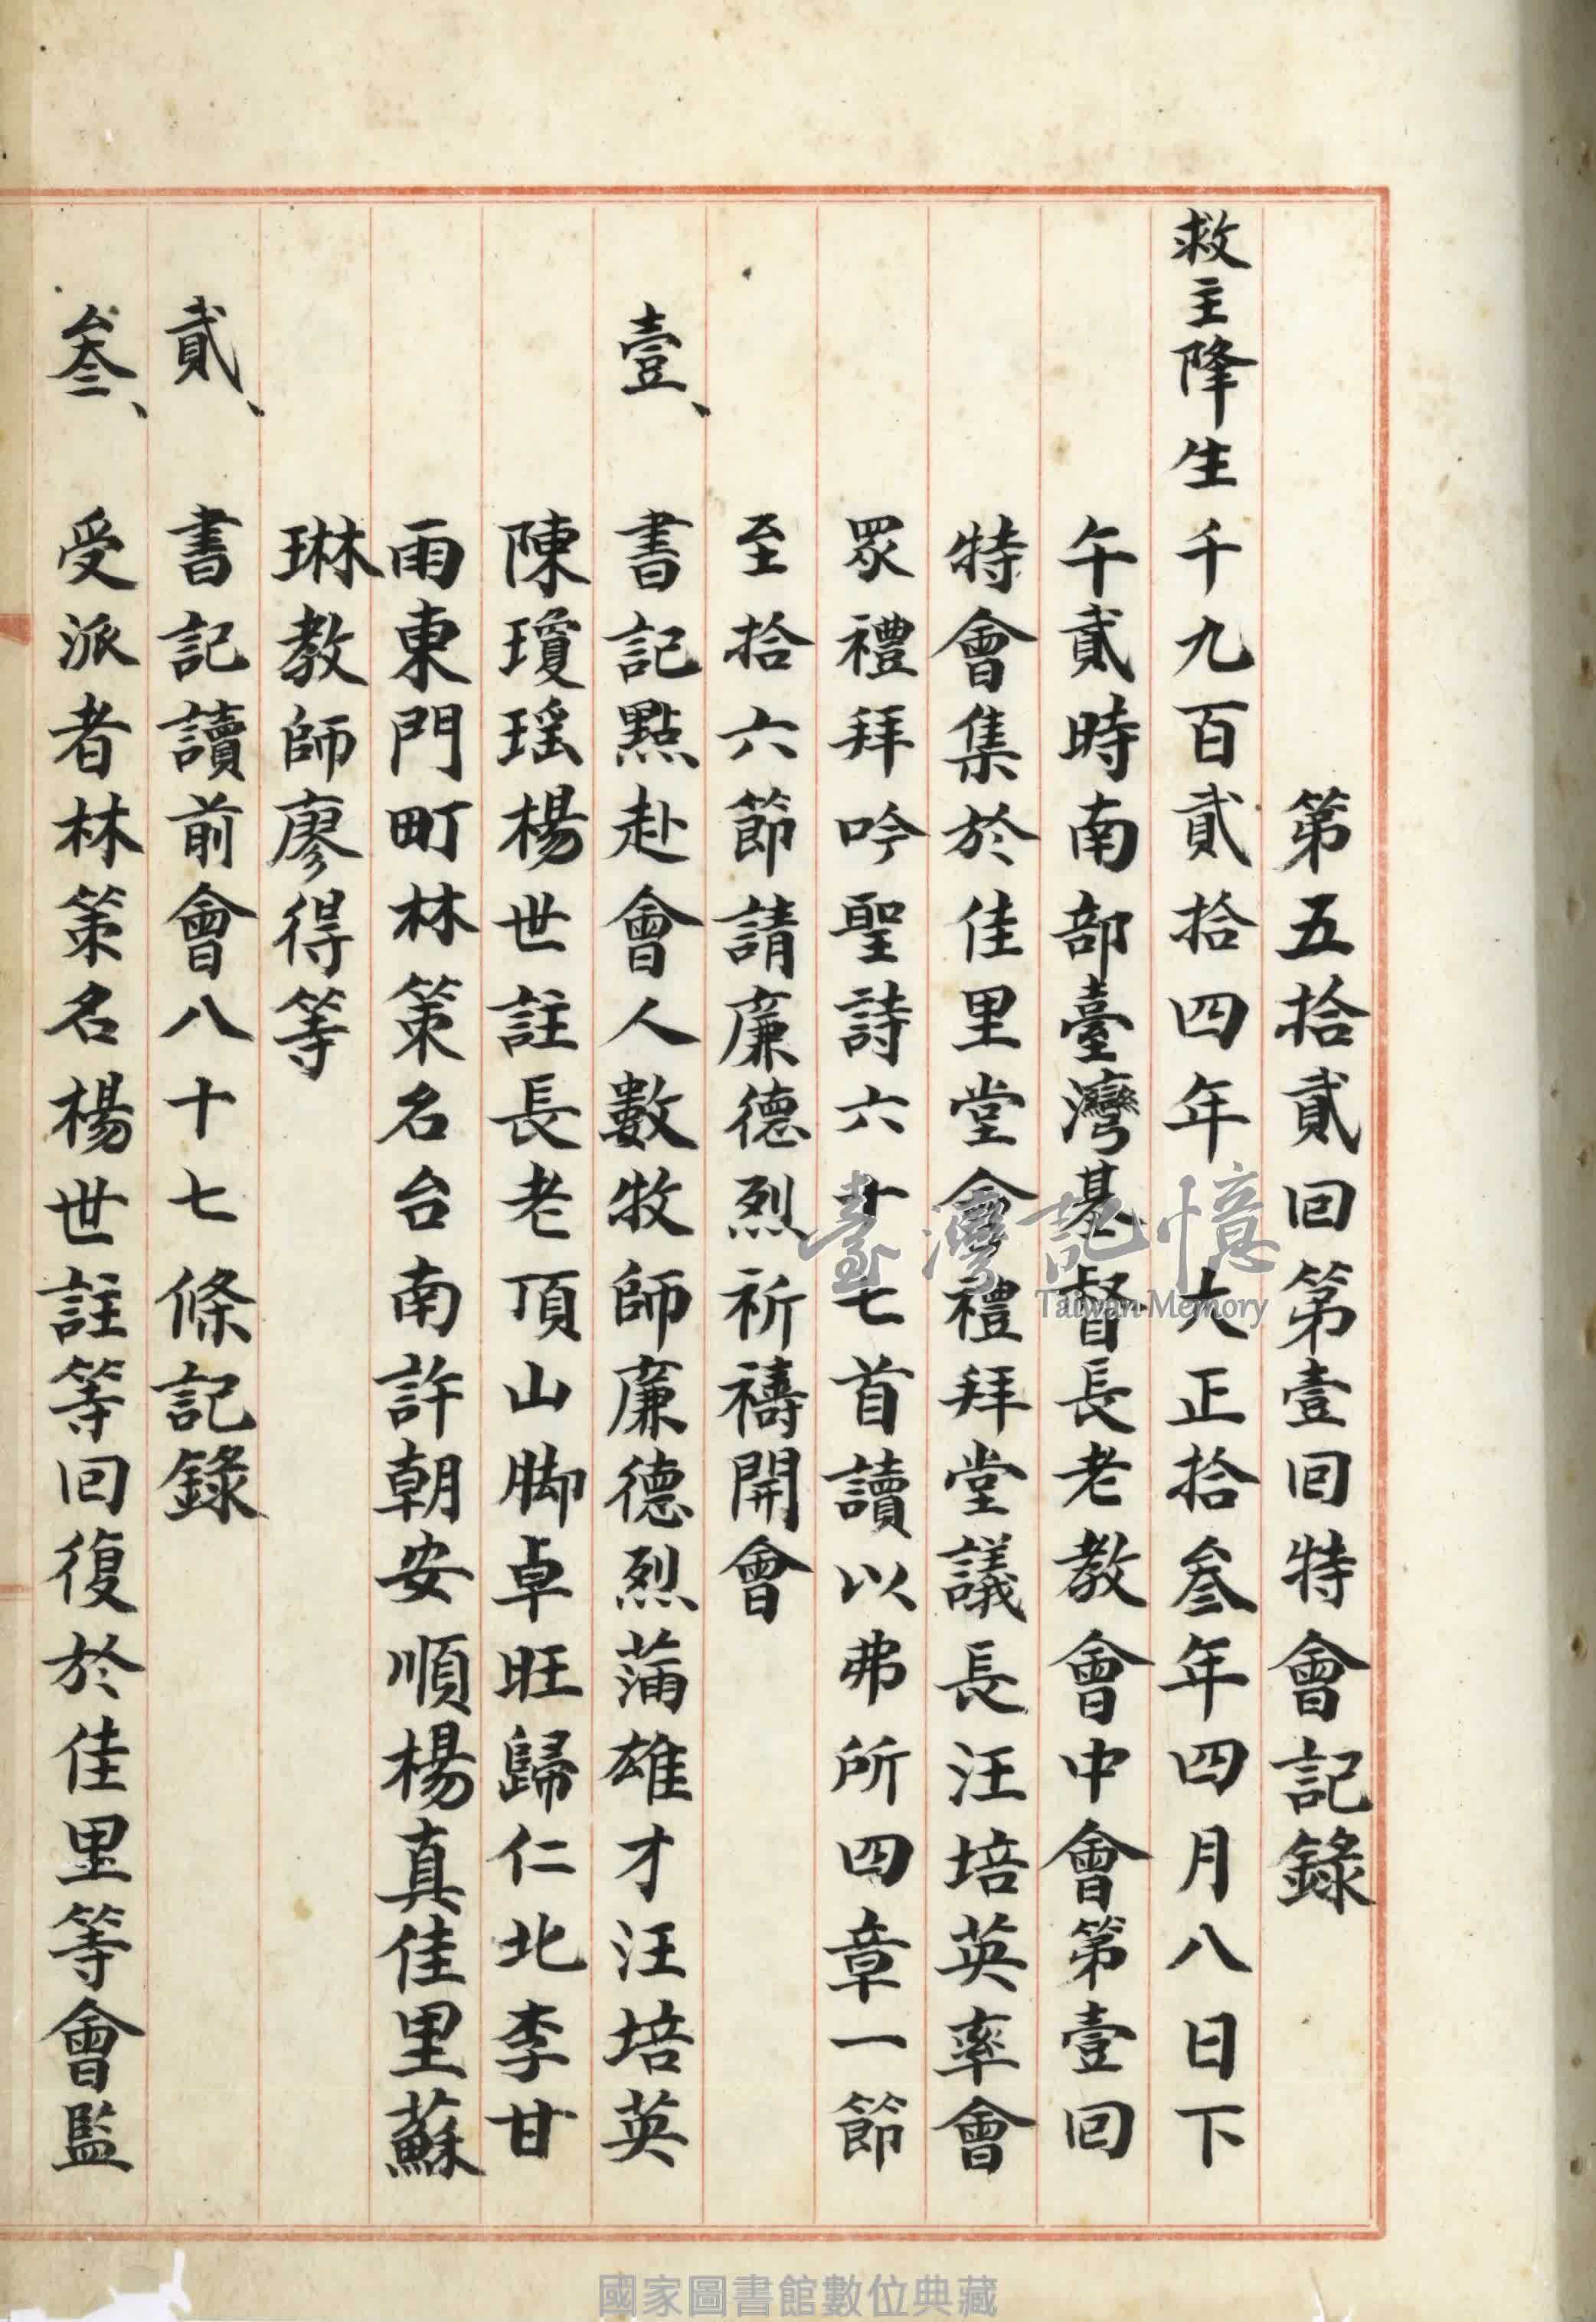 第五拾貳回第壹回特會記錄
救主降生千九百貳拾四年大正拾叁年四月八日下
午貳時南部臺灣基督長老教會中會第壹回
特會集於佳里堂會禮拜堂議長汪培英率會
眾禮拜吟聖詩六十七首讀以弗所四章一節
至拾六節請廉德烈祈禱開會
壹、書記點赴會人數牧師廉德烈蒲雄才汪培英
陳瓊瑶楊世註長老頂山脚卓旺歸仁北李甘
雨東門町林策名台南許朝安順楊真佳里蘇
琳教師廖得等
貳、書記讀前會八十七條記錄
叁、受派者林策名楊世註等回復於佳里等會監
臺灣記憶
Taiwan Memory
國家圖書館數位典藏